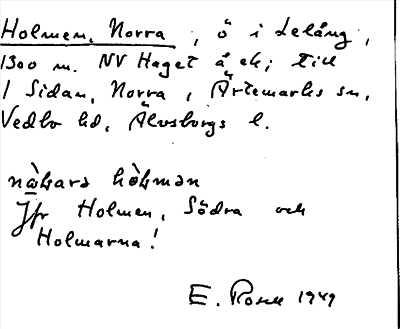 Holmen, Norra, ö i Lelång,
1300 m. NV Haget å ek; till
1 Sidan, Norra, Ärtemarks sn,
Vedbo hd, Älvsborgs l.
nòḱara hòḱmən
Jfr Holmen, Södra och
Holmarna!
E. Rosell 1949